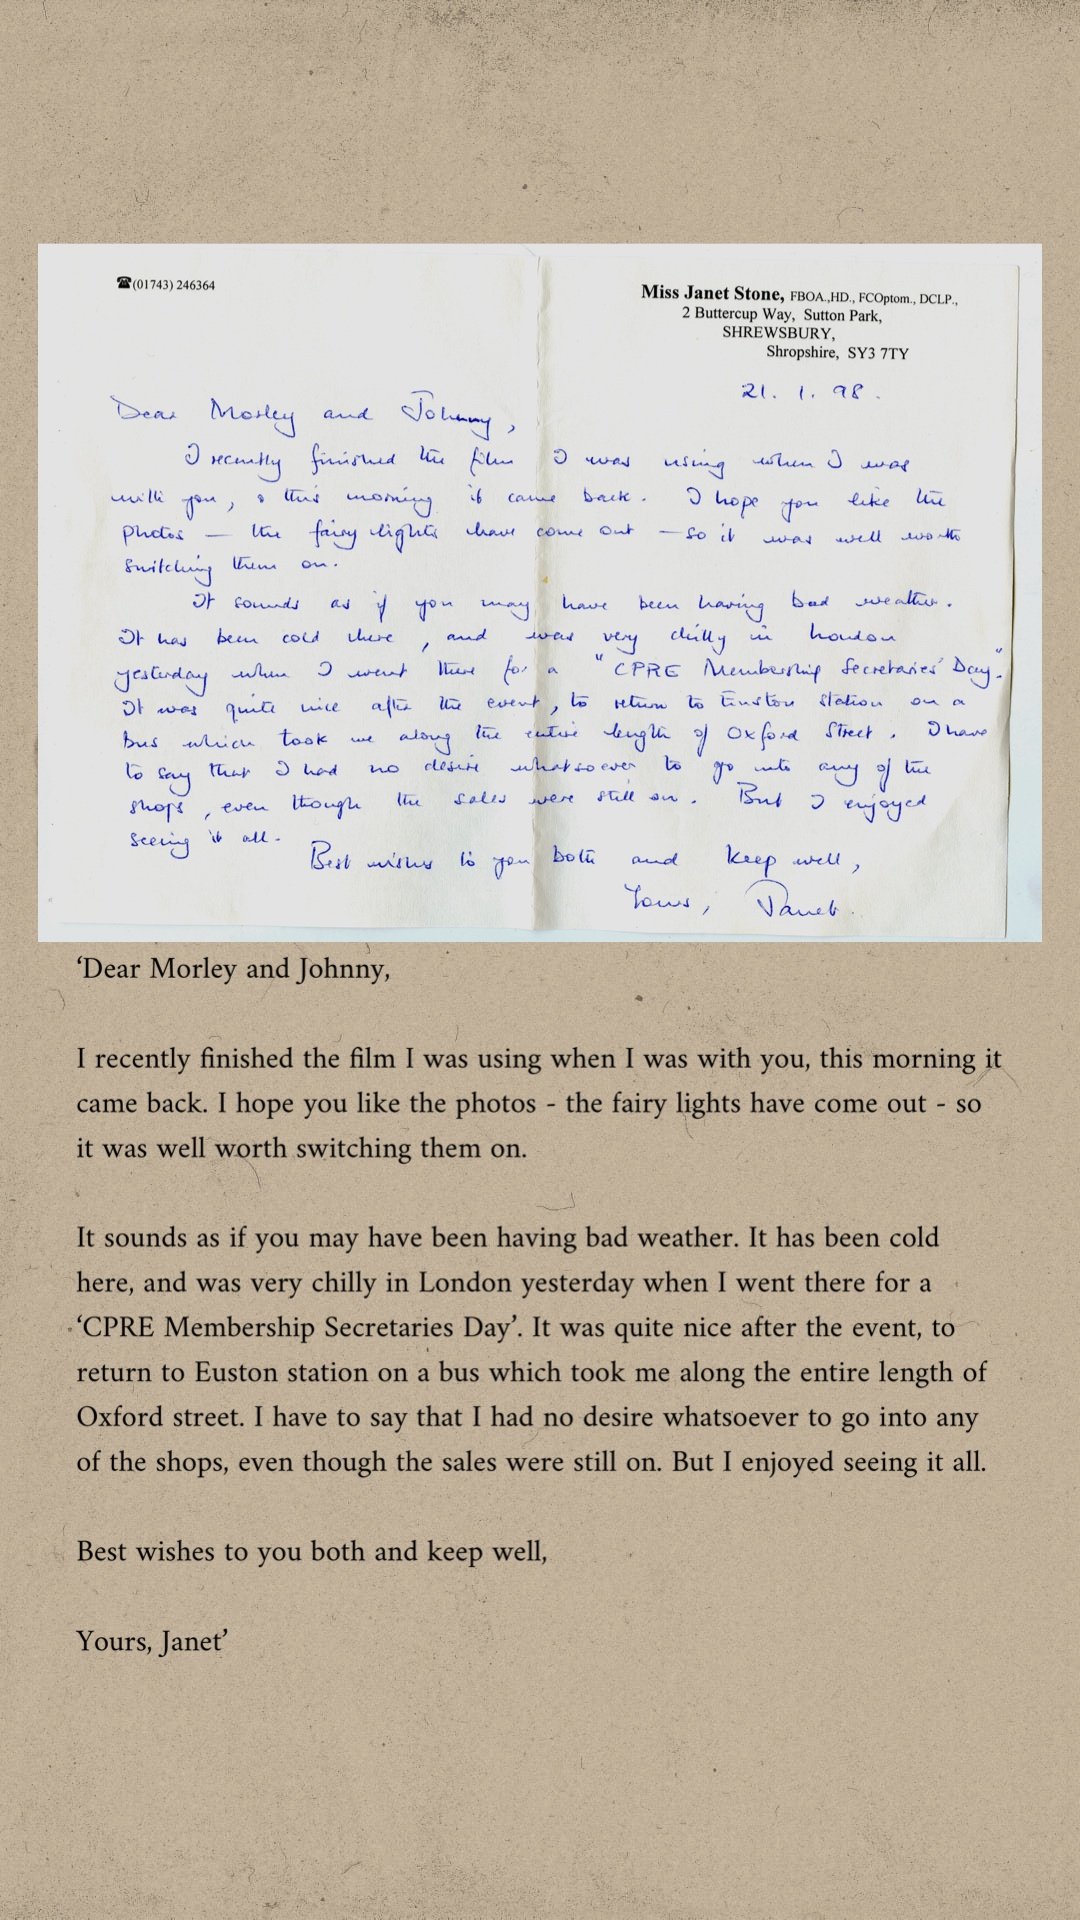 ☎(01743) 246364
Miss Janet Stone, FBOA.,HD., FCOptom., DCLP.,
2 Buttercup Way, Sutton Park,
SHREWSBURY,
Shropshire, SY3 7TY
21. 1. 98.
Dear Morley and Johnny,
I recently finished the film I was using when I was
with you, & this morning it came back. I hope you like the
photos — the fairy lights have come out — so it was well worth
switching them on.
It sounds as if you may have been having bad weather.
It has been cold here, and was very chilly in London
yesterday when I went there for a "CPRE Membership Secretaries' Day".
It was quite nice after the event, to return to Euston station on a
bus which took me along the entire length of Oxford Street. I have
to say that I had no desire whatsoever to go into any of the
shops, even though the sales were still on. But I enjoyed
seeing it all.
Best wishes to you both and keep well,
Yours, Janet.
‘Dear Morley and Johnny,
I recently finished the film I was using when I was with you, this morning it
came back. I hope you like the photos - the fairy lights have come out - so
it was well worth switching them on.
It sounds as if you may have been having bad weather. It has been cold
here, and was very chilly in London yesterday when I went there for a
‘CPRE Membership Secretaries Day’. It was quite nice after the event, to
return to Euston station on a bus which took me along the entire length of
Oxford street. I have to say that I had no desire whatsoever to go into any
of the shops, even though the sales were still on. But I enjoyed seeing it all.
Best wishes to you both and keep well,
Yours, Janet’